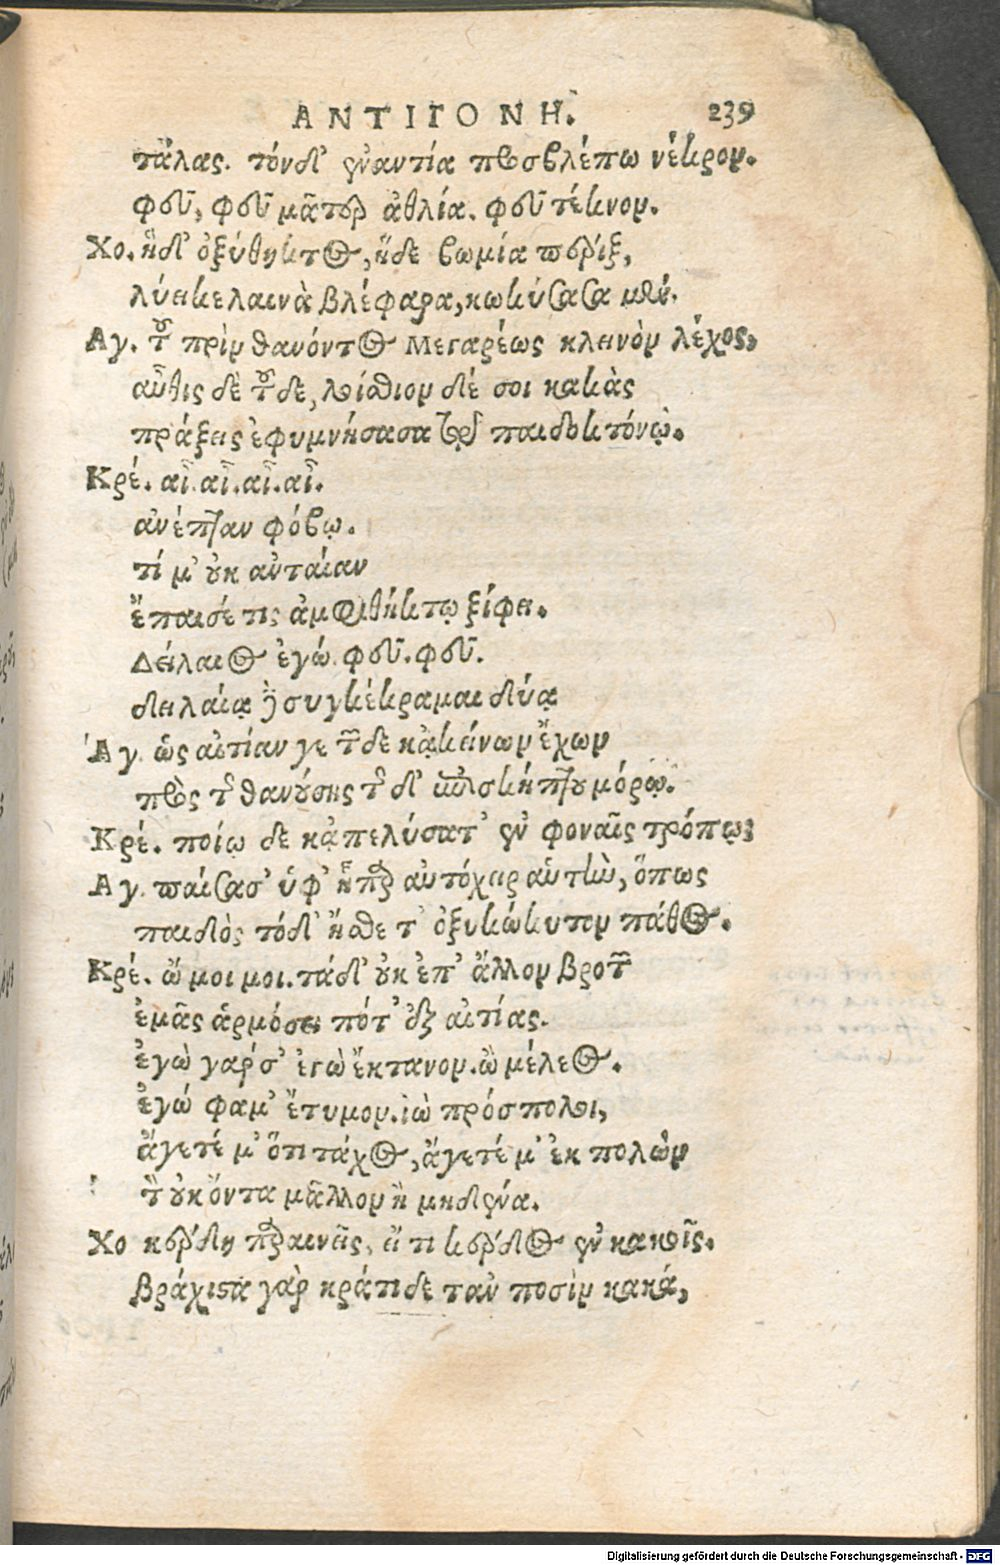 ΑΝΤΙΓΟΝΗ. 239
τάλας. τόνδ' ἐναντία προσβλέπω νέκρον.
φεῦ, φεῦ μᾶτερ ἀθλία. φεῦ τέκνον.
Χο. ἥδ' ὀξύθηκτος, ἥδε βωμία πέριξ,
λύει κελαινὰ βλέφαρα, κωκύσασα μὲν.
Αγ. τοῦ πρὶν θανόντος Μεγαρέως κλεινὸν λέχος,
αὖθις δὲ τοῦδε, λοίσθιον δέ σοι κακὰς
πράξεις ἐφυμνήσασα τῷ παιδοκτόνῳ.
Κρέ. αἶ. αἶ. αἶ. αἶ.
ἀνέπταν φόβῳ.
τί μ' οὐκ ἀνταίαν
ἔπαισέ τις ἀμφιθήκτῳ ξίφει.
Δείλαιος ἐγώ. φεῦ. φεῦ.
δειλαίᾳ δὲ συγκέκραμαι δύᾳ
Ἀγ. ὡς αἰτίαν γε τῶνδε κἀκείνων ἔχων
πρὸς τῆς θανούσης τῆς δ' ἐπισκήπτου μόρῳ.
Κρέ. ποίῳ δε κἀπελύσατ' ἐν φοναῖς τρόπῳ;
Αγ. παίσασ' ὑφ' ἧπαρ αὐτόχειρ αὑτὴν, ὅπως
παιδὸς τόδ' ᾔσθετ' ὀξυκώκυτον πάθος.
Κρέ. ὤ μοι μοι. τάδ' οὐκ ἐπ' ἄλλον βροτῶν
ἐμᾶς ἁρμόσει πότ' ἐξ αἰτίας.
ἐγὼ γάρ σ' ἐγὼ ἔκτανον. ὢ μέλεος.
ἐγώ φάμ' ἔτυμον. ἰὼ πρόσπολοι,
ἄγετέ μ' ὅτι τάχος, ἄγετέ μ' ἐκ πολῶν
τὸν οὐκ ὄντα μᾶλλον ἢ μηδένα.
Χο κέρδη παραινεῖς, εἴ τι κέρδος ἐν κακοῖς.
βράχιστα γὰρ κράτιδε τἀν ποσὶν κακά,
Digitalisierung gefördert durch die Deutsche Forschungsgemeinschaft - DFG